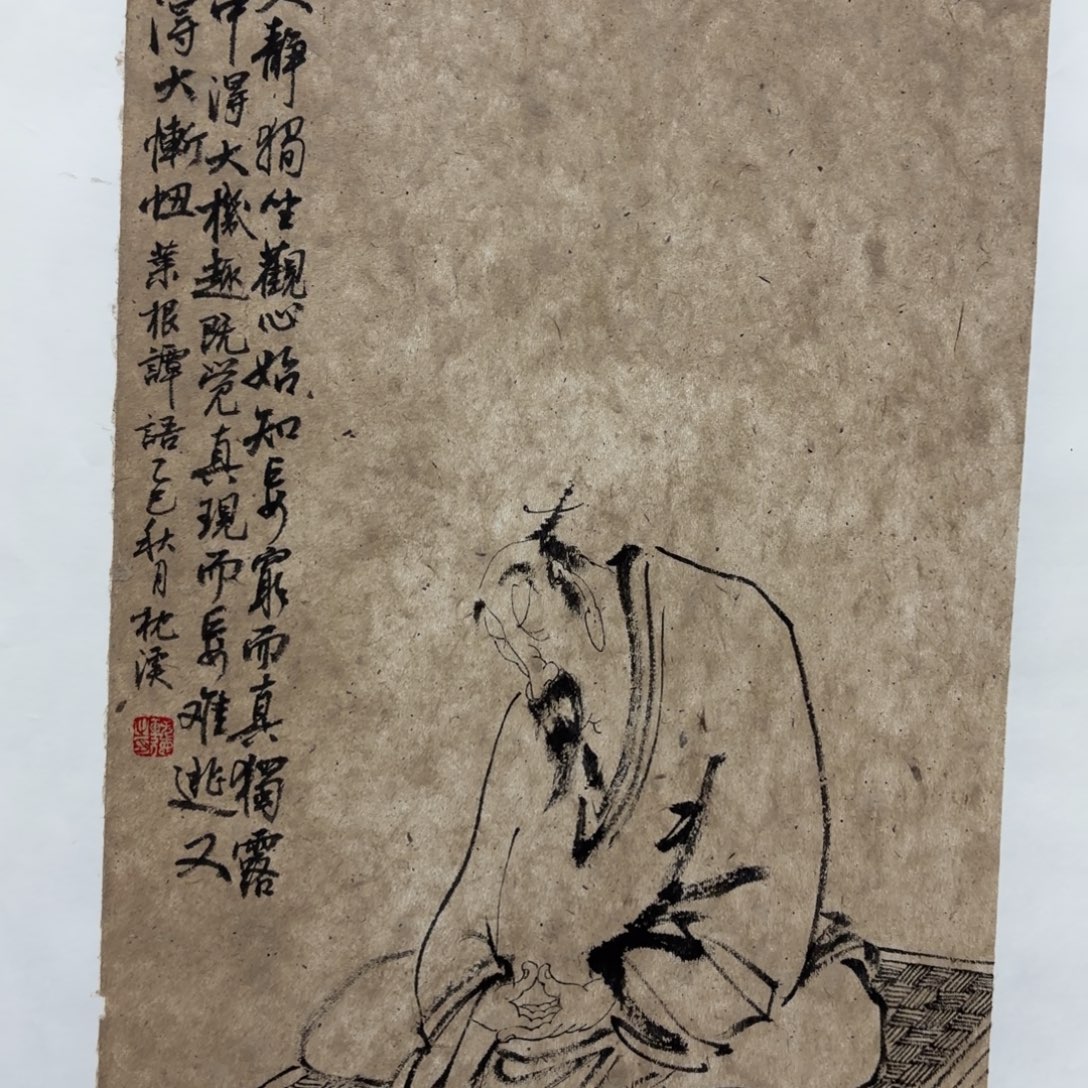 靜獨坐觀心始知妄窮而真獨露
中得大機趣既觉真現而妄难逃又
得大慚忸 菜根譚語 乙巳秋月 枕溪